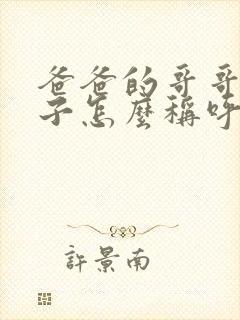 爸爸的哥哥
子怎麼稱呼
許景南